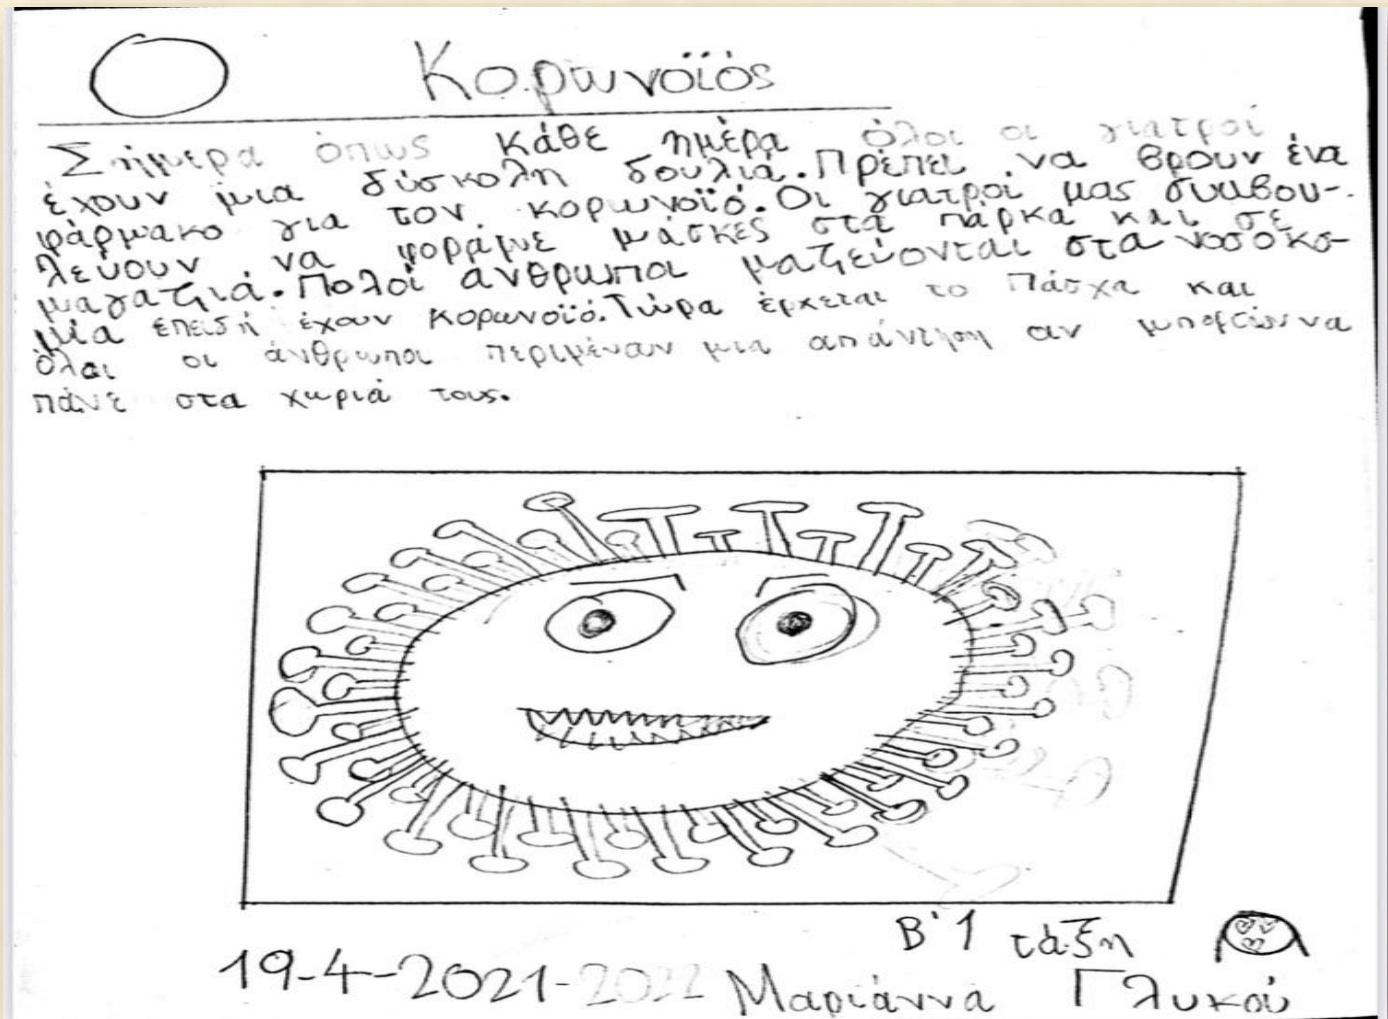 Κορωνοϊός
Σήμερα όπως κάθε ημέρα όλοι οι γιατροί
έχουν μια δύσκολη δουλιά. Πρέπει να βρουν ένα
φάρμακο για τον κορωνοϊό. Οι γιατροί μας συμβου-
λεύουν να φοράμε μάσκες στα πάρκα και σε
μαγαζιά. Πολοί άνθρωποι μαζεύονται στα νοσοκο-
μία επειδή έχουν κορωνοϊό. Τώρα έρχεται το Πάσχα και
όλοι οι άνθρωποι περιμέναν μια απάντηση αν μπορούν να
πάνε στα χωριά τους.
Β'1 τάξη
19-4-2021-2022 Μαριάννα Γλυκού